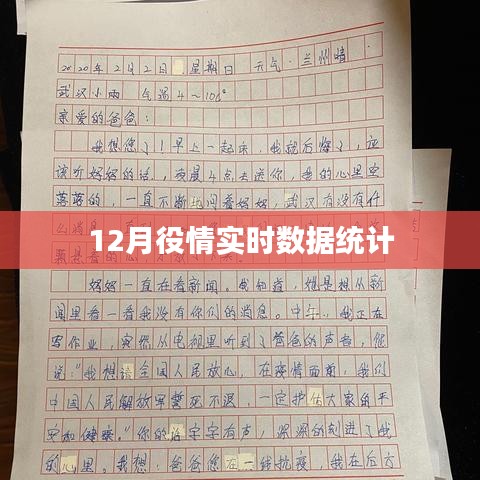 2020年2月2日 星期日 天气:兰州晴
武汉小雨 气温4~10℃
亲爱的爸爸:
我想您了!早上一起床,我就后悔了,应
该听妈妈的话,凌晨4点去送你,我的心里空
落落的,一直不断地问着妈妈,武汉有没有什
12月役情实时数据统计
妈妈一直在看新闻。我知道,她是想从新
闻里看一看我没有你们的消息。中午,我正在
写作业,突然从电视里听到了爸爸的声音,您
说:“我想请全国人民放心,在疫情面前,我们
中国人民解放军誓死不退,一定护佑大家的平
安和健康。”你的话字字有声,深深的刻进了我
的心里。我想:爸爸您在一线抗疫,我在后方